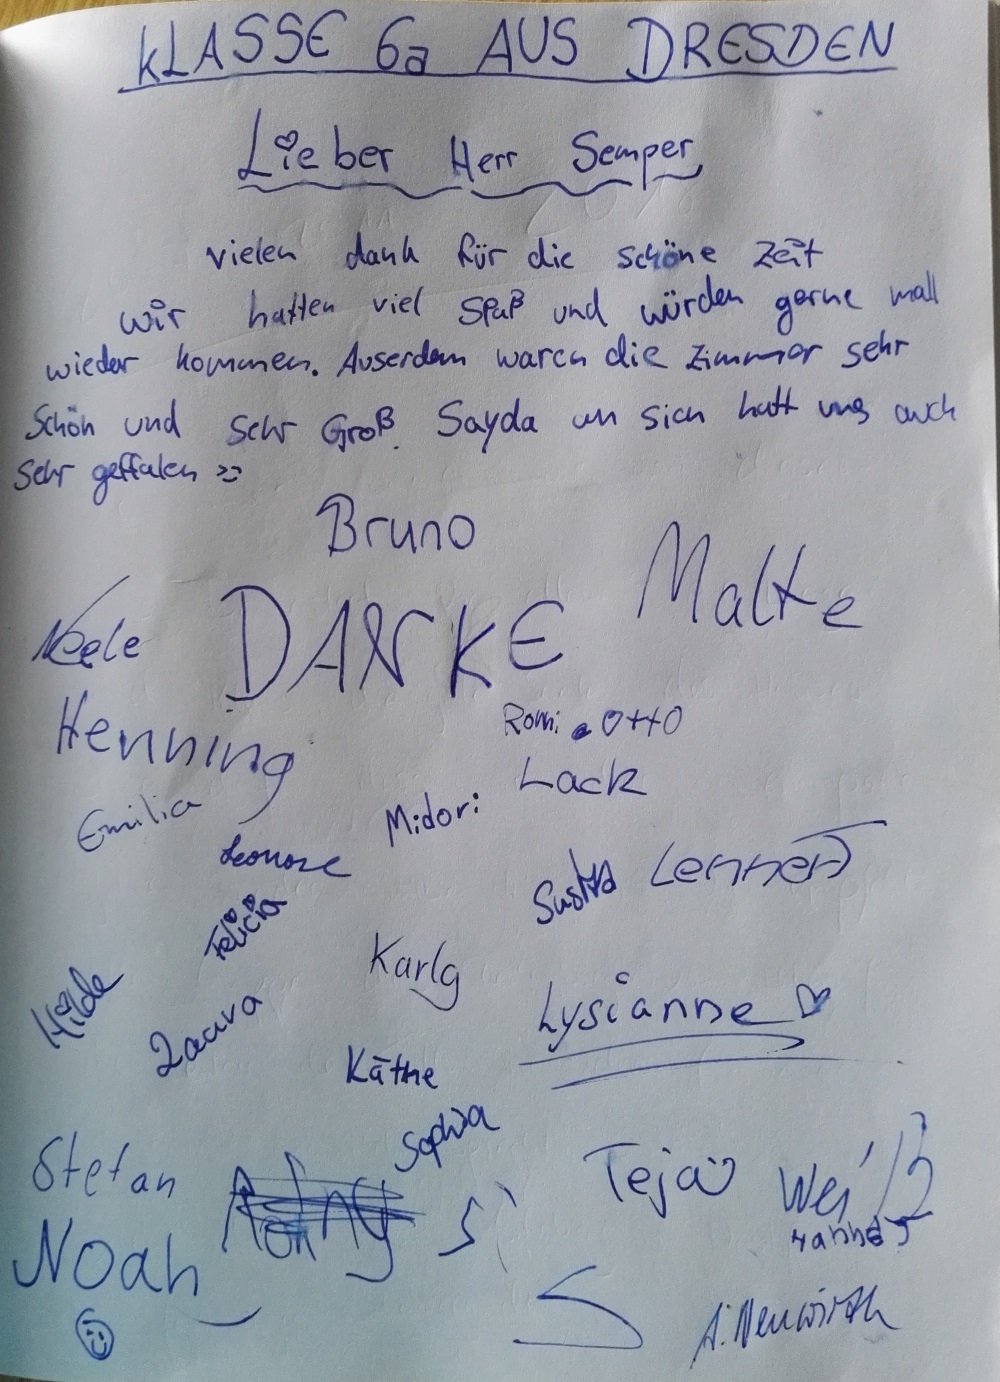 KLASSE 6a AUS DRESDEN
Lieber Herr Semper
vielen dank für die schöne Zeit
wir hatten viel Spaß und würden gerne mall
wieder kommen. Auserdem waren die Zimmer sehr
Schön und sehr Groß. Sayda an sich hatt uns auch
sehr geffalen
Bruno
Malte
Neele
DANKE
Henning
Romi Otto
Lack
Emilia
Midori
Leonore
Lennert
Felicia
Karlg
Hilde
Lysianne
Laura
Käthe
Sophia
Stefan
Teja
Weiß
Hannes
Noah
A. Neuwirth